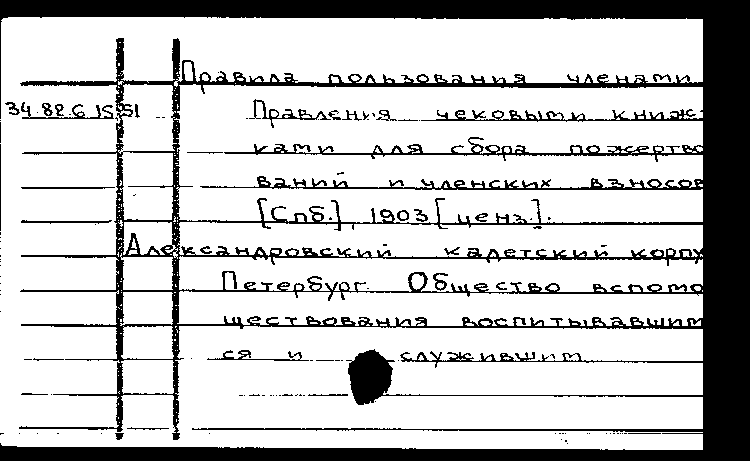 Правила пользования членами
34.82.6.1551 Правления чековыми книж-
ками для сбора пожертво
ваний и членских взносов
[Спб.], 1903 [ценз.].
Александровский кадетский корпу
Петербург. Общество вспомо
ществования воспитывавшим
ся и служившим